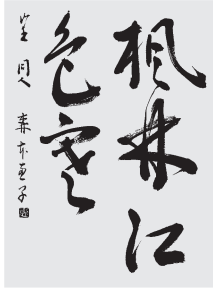 楓林江
色寒
同人 森本子